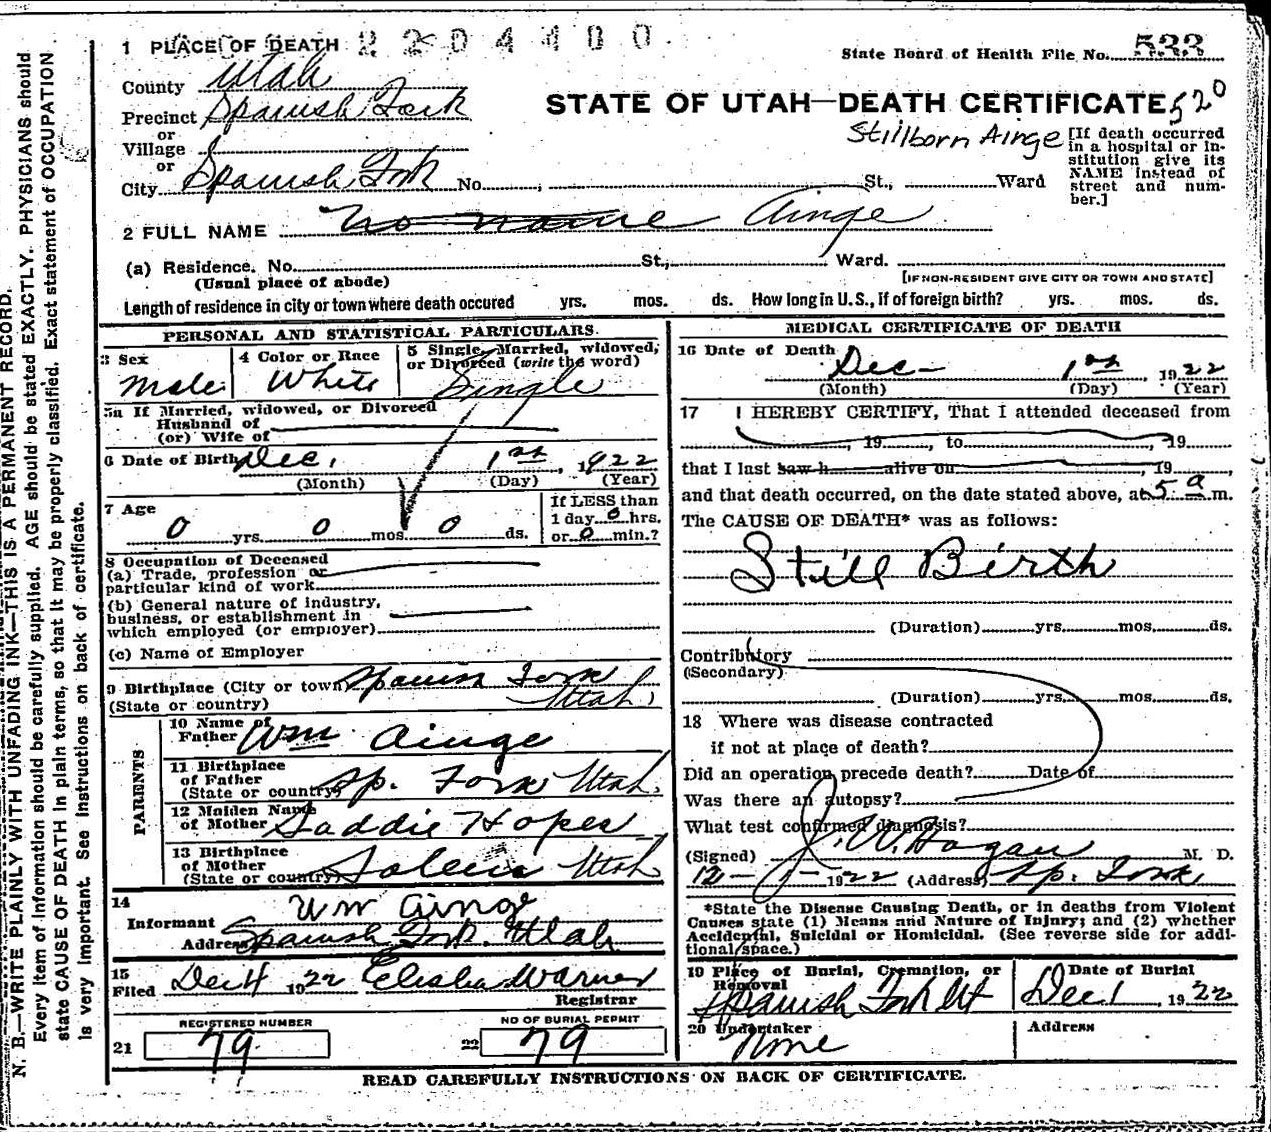 1 PLACE OF DEATH 2204400
State Board of Health File No. 533
County Utah
STATE OF UTAH—DEATH CERTIFICATE 520
Precinct Spanish Fork
or
Village
or
City Spanish Fork No. St., Ward
Stillborn Ainge
[If death occurred
in a hospital or in-
stitution give its
NAME instead of
street and num-
ber.]
2 FULL NAME no name Ainge
(a) Residence. No. St., Ward.
(Usual place of abode)
[IF NON-RESIDENT GIVE CITY OR TOWN AND STATE]
Length of residence in city or town where death occured yrs. mos. ds. How long in U.S., if of foreign birth? yrs. mos. ds.
PERSONAL AND STATISTICAL PARTICULARS.
3 Sex
Male
4 Color or Race
White
5 Single, Married, widowed,
or Divorced (write the word)
Single
5a If Married, widowed, or Divorced
Husband of
(or) Wife of
6 Date of Birth Dec. 1st, 1922
(Month) (Day) (Year)
7 Age
0 yrs. 0 mos. 0 ds.
If LESS than
1 day 0 hrs.
or 0 min.?
8 Occupation of Deceased
(a) Trade, profession or
particular kind of work
(b) General nature of industry,
business, or establishment in
which employed (or employer)
(c) Name of Employer
9 Birthplace (City or town) Spanish Fork
(State or country) Utah
PARENTS
10 Name of
Father Wm Ainge
11 Birthplace
of Father
(State or country) Sp. Fork Utah.
12 Maiden Name
of Mother Saddie Hopes
13 Birthplace
of Mother
(State or country) Salem Utah
14
Informant Wm Ainge
Address Spanish Fork. Utah
15
Filed Dec 4 1922 Elisha Warner
Registrar
REGISTERED NUMBER
21 79
NO OF BURIAL PERMIT
22 79
MEDICAL CERTIFICATE OF DEATH
16 Date of Death
Dec- 1st, 1922
(Month) (Day) (Year)
17 I HEREBY CERTIFY, That I attended deceased from
, 19 , to , 19
that I last saw h alive on , 19 ,
and that death occurred, on the date stated above, at 5 a m.
The CAUSE OF DEATH* was as follows:
Still Birth
(Duration) yrs. mos. ds.
Contributory
(Secondary)
(Duration) yrs. mos. ds.
18 Where was disease contracted
if not at place of death?
Did an operation precede death? Date of
Was there an autopsy?
What test confirmed diagnosis?
(Signed) J. W. Hagan M. D.
12-1-1922 (Address) Sp. Fork
*State the Disease Causing Death, or in deaths from Violent
Causes state (1) Means and Nature of Injury; and (2) whether
Accidental, Suicidal or Homicidal. (See reverse side for addi-
tional space.)
19 Place of Burial, Cremation, or
Removal
Spanish Fork Ut
Date of Burial
Dec 1, 1922
20 Undertaker
None
Address
READ CAREFULLY INSTRUCTIONS ON BACK OF CERTIFICATE.
N. B.—WRITE PLAINLY WITH UNFADING INK—THIS IS A PERMANENT RECORD.
Every item of information should be carefully supplied. AGE should be stated EXACTLY. PHYSICIANS should
state CAUSE OF DEATH in plain terms, so that it may be properly classified. Exact statement of OCCUPATION
is very important. See instructions on back of certificate.